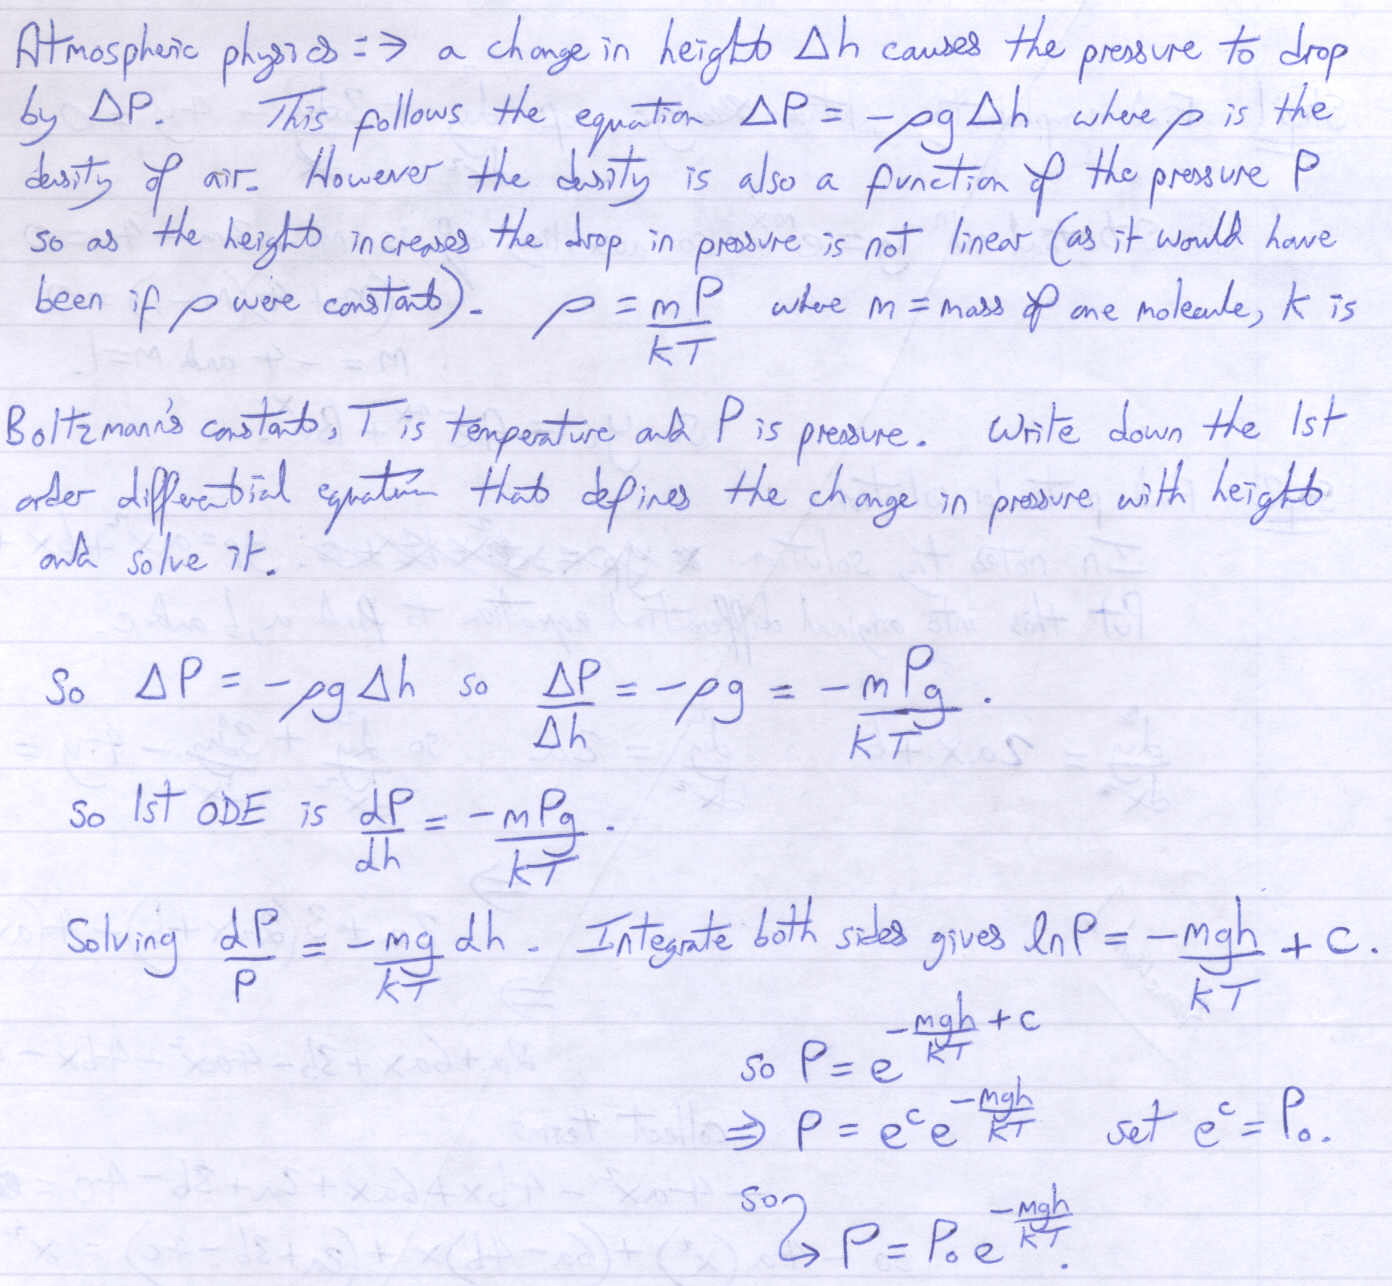 Atmospheric physics :=> a change in height Δh causes the pressure to drop
by ΔP. This follows the equation ΔP = -ρgΔh where ρ is the
density of air. However the density is also a function of the pressure P
so as the height increases the drop in pressure is not linear (as it would have
been if ρ were constant). ρ = mP/kT where m = mass of one molecule, k is
Boltzmann's constant, T is temperature and P is pressure. Write down the 1st
order differential equation that defines the change in pressure with height
and solve it.
So ΔP = -ρgΔh so ΔP/Δh = -ρg = -mPg/kT.
so 1st ODE is dP/dh = -mPg/kT.
Solving dP/P = -mg/kT dh. Integrate both sides gives lnP = -mgh/kT + c.
so P = e^(-mgh/kT + c)
⇒ P = e^c e^(-mgh/kT) set e^c = P₀.
so P = P₀e^(-mgh/kT).